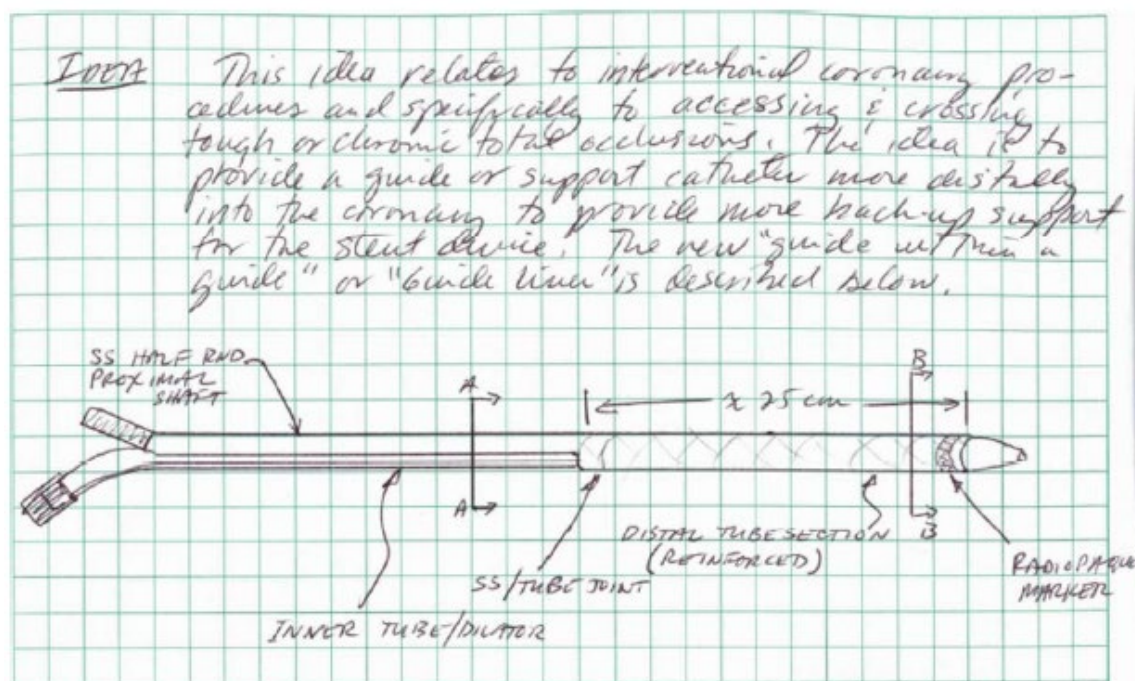 IDEA This idea relates to interventional coronary pro-
cedures and specifically to accessing & crossing
tough or chronic total occlusions. The idea is to
provide a guide or support catheter more distally
into the coronary to provide more back-up support
for the stent device. The new "guide within a
guide" or "Guide Liner" is described below.
SS HALF RND
PROXIMAL
SHAFT
A
B
x 25 cm
A
B
DISTAL TUBE SECTION
(REINFORCED)
SS/TUBE JOINT
RADIOPAQUE
MARKER
INNER TUBE/DILATOR